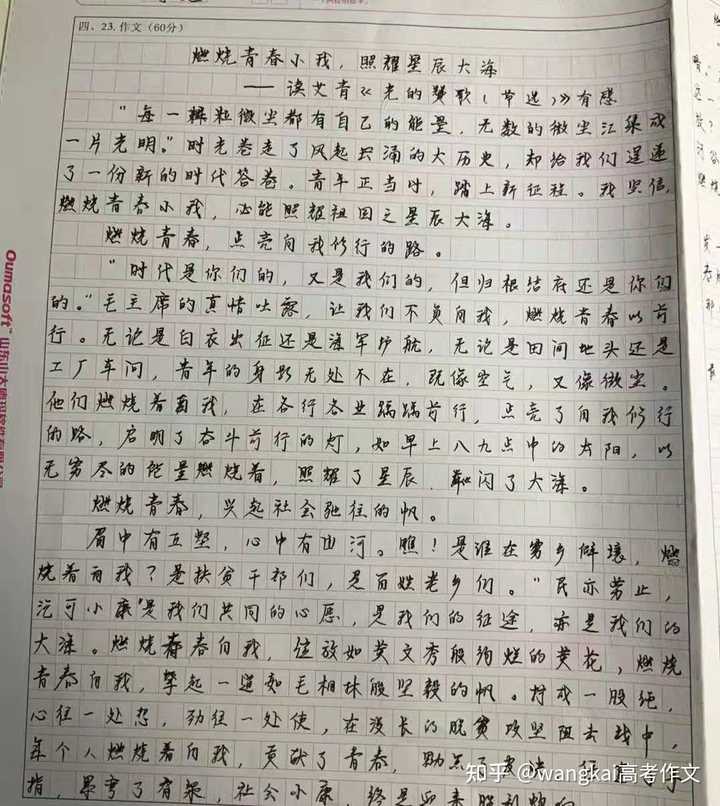 四、23.作文(60分)
燃烧青春小我，照耀星辰大海
——读艾青《光的赞歌(节选)》有感
"每一粒微尘都有自己的能量，无数的微尘汇集成
一片光明。"时光卷走了风起云涌的大历史，却给我们递
了一份新的时代答卷。青年正当时，踏上新征程。我坚信，
燃烧青春小我，必能照耀祖国之星辰大海。
燃烧青春，点亮自我修行的路。
"时代是你们的，又是我们的，但归根结底还是你们
的。"毛主席的真情吐露，让我们不负自我，燃烧青春以前
行。无论是白衣出征还是海军护航，无论是田间地头还是
工厂车间，青年的身影无处不在，既像空气，又像微尘。
他们燃烧着自我，在各行各业踽踽前行，点亮了自我修行
的路，启明了奋斗前行的灯，如早上八九点中的太阳，以
无穷尽的能量燃烧着，照耀了星辰，闪了大海。
燃烧青春，兴起社会驰往的帆。
眉中有丘壑，心中有山河。瞧！是谁在穷乡僻壤，燃
烧着自我？是扶贫干部们，是百姓老乡们。"民亦劳止，
汔可小康"是我们共同的心愿，是我们的征途，亦是我们的
大海。燃烧青春自我，绽放如黄文秀般绚烂的黄花，燃烧
青春自我，擎起一道如毛相林般坚毅的帆。拧成一股绳，
心往一处想，劲往一处使，在漫长的脱贫攻坚阻击战中，
每个人燃烧着自我，贡献了青春，
指，社会小康，终是迎来胜利
Oumasoft
知乎 @wangkai高考作文